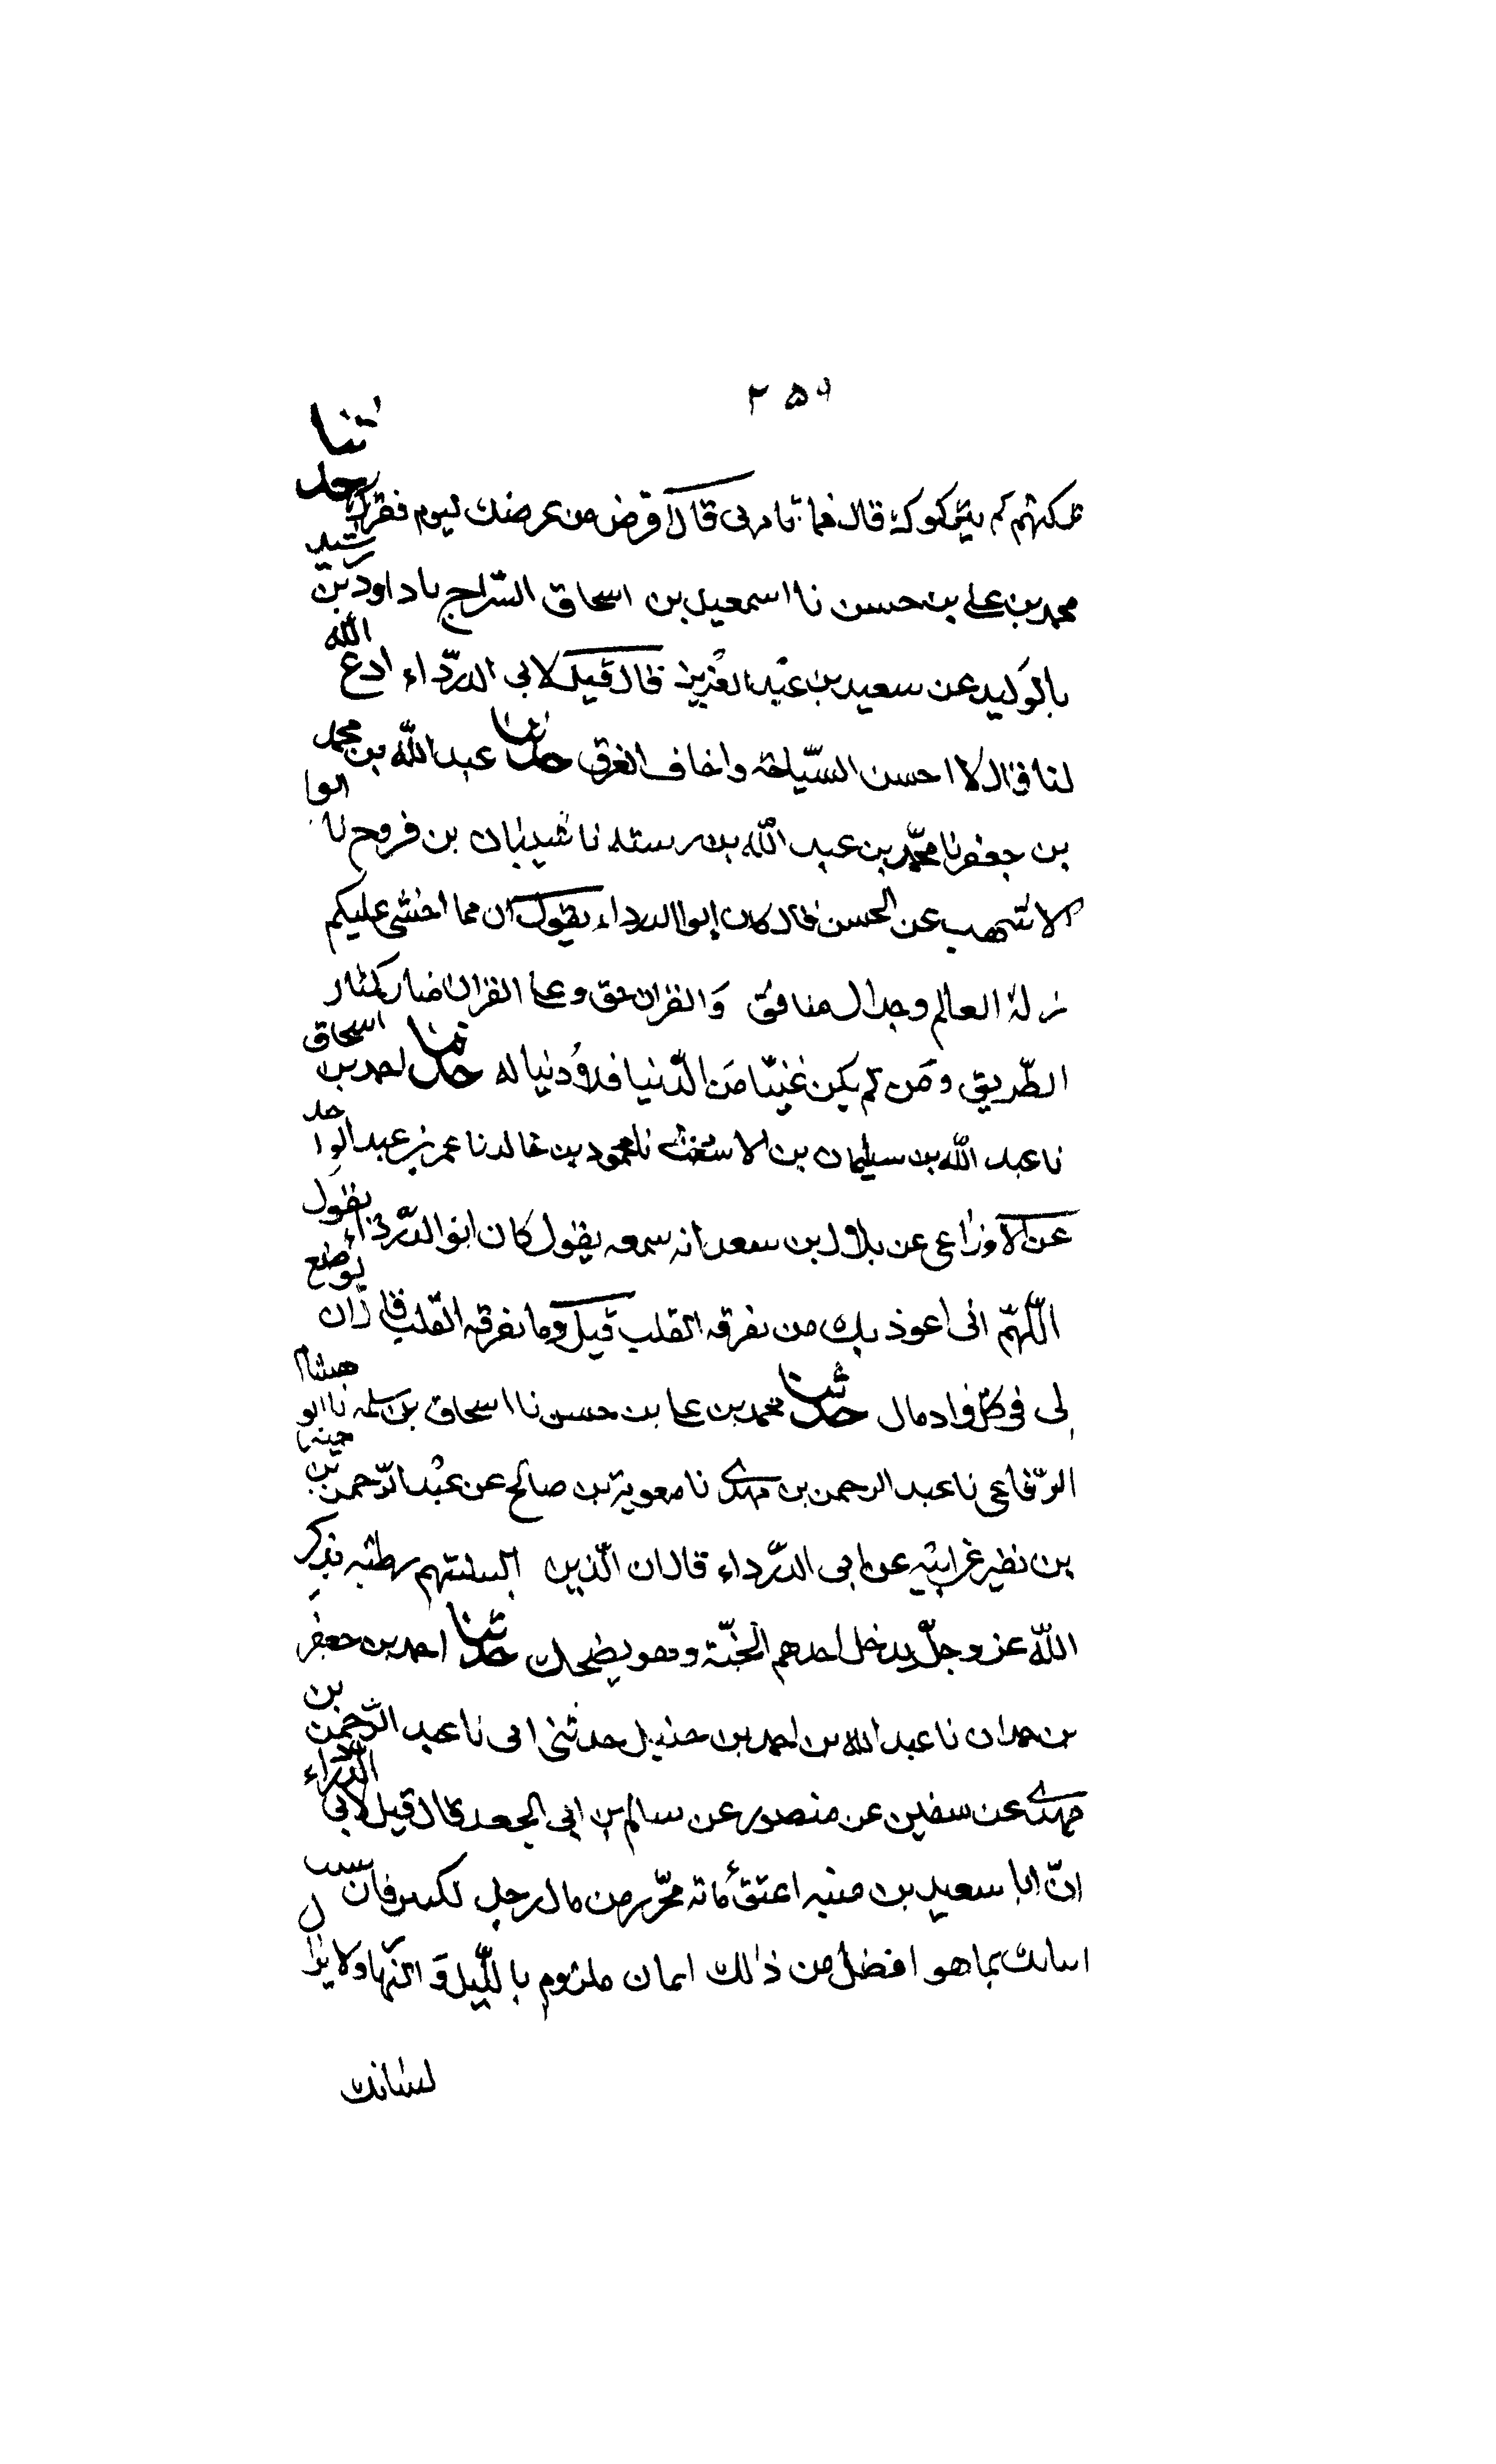 ٢٥٩
تركتهم لم يتركوك قال فما تامرنى قال اقرض من عرضك ليوم فقرك حدثنا
محمد بن على بن حسن نا اسمعيل بن اسحاق السّراج نا داود بن رشيد
نا الوليد عن سعيد بن عبد العزيز قال قيل لابى الدرّداء ادع الله
لنا قال لا احسن السّباحة واخاف الغرق حدثنا عبد الله بن محمد
بن جعفر نا محمّد بن عبد الله بن رسته نا شيبان بن فروخ نا ابوا
الاشهب عن الحسن قال كان ابوا الدرداء يقول ان مما اخشى عليكم
زلة العالم وجدال منافق وَالقران حق وعلى القران منار كمنار
الطّريق ومَن لم يكن غنيّا مَن الدّنيا فلا دُنيا له حدثنا احمد بن اسحاق
نا عبد الله بن سليمان بن الاشعث نا محمود بن خالد نا عمر بن عبد الواحد
عن الاوزاعى عن بلال بن سعد انه سمعه يقول كان ابو الدّرداء يقول
اللّهمّ انى اعوذ بك من تفرقه القلب قيل وما تفرقه القلب قال ان يوضع
لى فى كلّ واد مال حدثنا محمد بن على بن حسن نا اسحاق بن سلمه نا ابو هشام
الرّفاعى نا عبد الرحمن بن مهدى نا معوية بن صالح عن عبد الرّحمن بن
بن نظير عن ابيه عن ابى الدرّداء قال ان الّذين السنتهم رطبه بذكر
الله عز وجلّ يدخل احدهم الجنّة وهو يضحك حدثنا احمد بن جعفر
بن حمدان نا عبد الله بن احمد بن حنبل حدثنى ابى نا عبد الرّحمن بن
مهدى عن سفين عن منصور عن سالم بن ابى الجعد قال قيل لابى الدّرداء
انّ ابا سعيد بن منبه اعتق مائة محرّر من مال رجل فان
بما هو افضل من ذالك ايمان ملزوم با للّيل وَ النّهار ولا يزال
لسانك